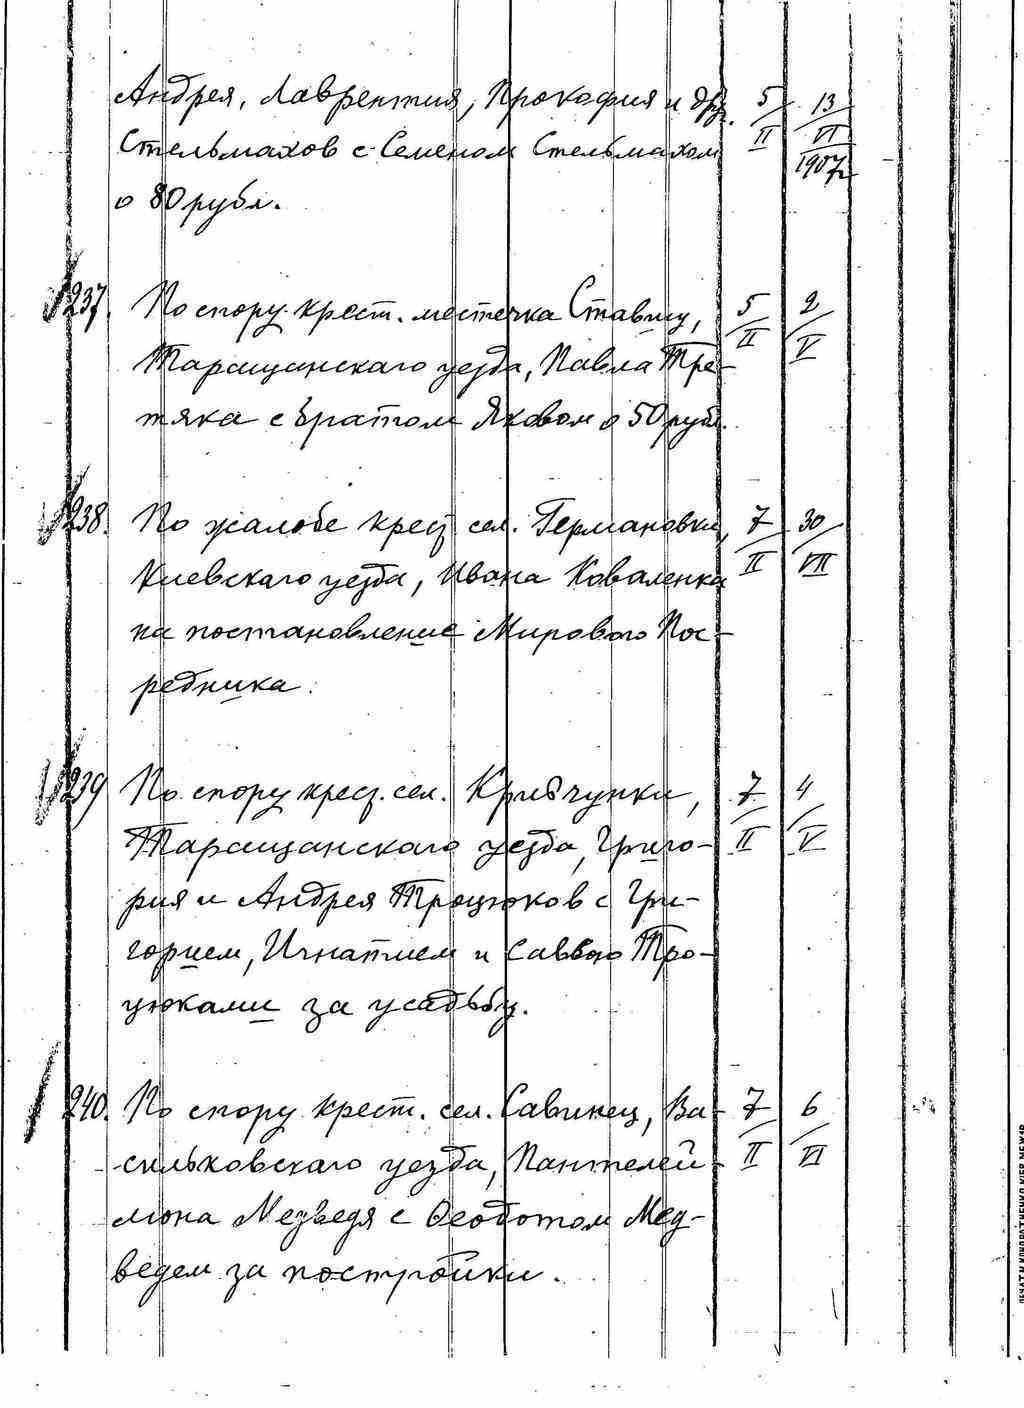 Андрея, Лаврентия, Прокофия и др. 5/II 13/VI
Стельмахов с Семеном Стельмахом 1907г.
о 80 рубл.
237. По спору крест. местечка Ставищ, 5/II 2/V
Таращанскаго уезда, Павла Тре-
тяка с братом Яковом о 50 рубл.
238. По жалобе крест. сел. Германовки, 7/II 30/VII
Киевскаго уезда, Ивана Коваленка
на постановление Мирового Пос-
редника.
239 По спору крест. сел. Кривчунки, 7/II 4/V
Таращанскаго уезда, Григо-
рия и Андрея Троцюков с Гри-
горием, Игнатием и Саввою Тро-
цюками за усадьбу.
240. По спору крест. сел. Савинец, Ва- 7/II 6/VI
сильковскаго уезда, Пантелей-
мона Медведя с Феодотом Мед-
ведем за постройки.